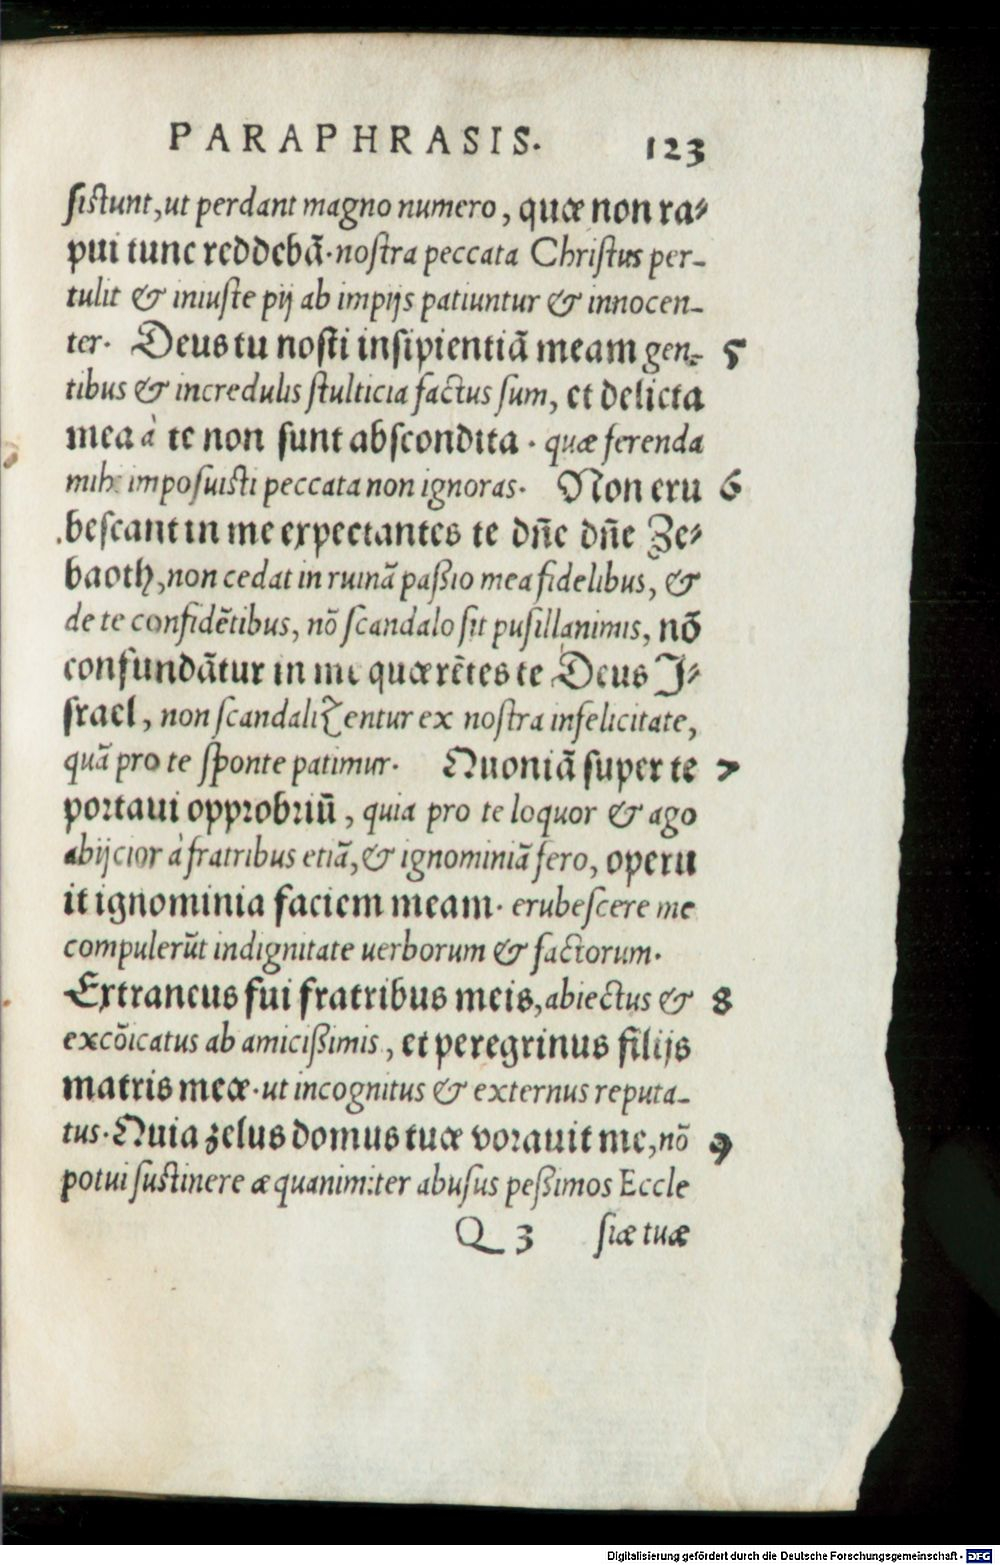 PARAPHRASIS. 123
sistunt, ut perdant magno numero, quæ non ra⸗
pui tunc reddebã. nostra peccata Christus per-
tulit & iniuste pij ab impijs patiuntur & innocen-
ter. Deus tu nosti insipientiã meam gen- 5
tibus & incredulis stulticia factus sum, et delicta
mea à te non sunt abscondita. quæ ferenda
mihi imposuisti peccata non ignoras. Non eru 6
bescant in me expectantes te dñe dñe Ze⸗
baoth, non cedat in ruinã paßio mea fidelibus, &
de te confidẽtibus, nõ scandalo sit pusillanimis, nõ
confundãtur in me quærẽtes te Deus J⸗
srael, non scandalizentur ex nostra infelicitate,
quã pro te sponte patimur. Quoniã super te 7
portaui opprobriũ, quia pro te loquor & ago
abijcior à fratribus etiã, & ignominiã fero, operu
it ignominia faciem meam. erubescere me
compulerũt indignitate uerborum & factorum.
Extraneus fui fratribus meis, abiectus & 8
excõicatus ab amicißimis, et peregrinus filijs
matris meæ. ut incognitus & externus reputa-
tus. Quia zelus domus tuæ vorauit me, nõ 9
potui sustinere æquanimiter abusus peßimos Eccle
Q 3 siæ tuæ
Digitalisierung gefördert durch die Deutsche Forschungsgemeinschaft - DFG